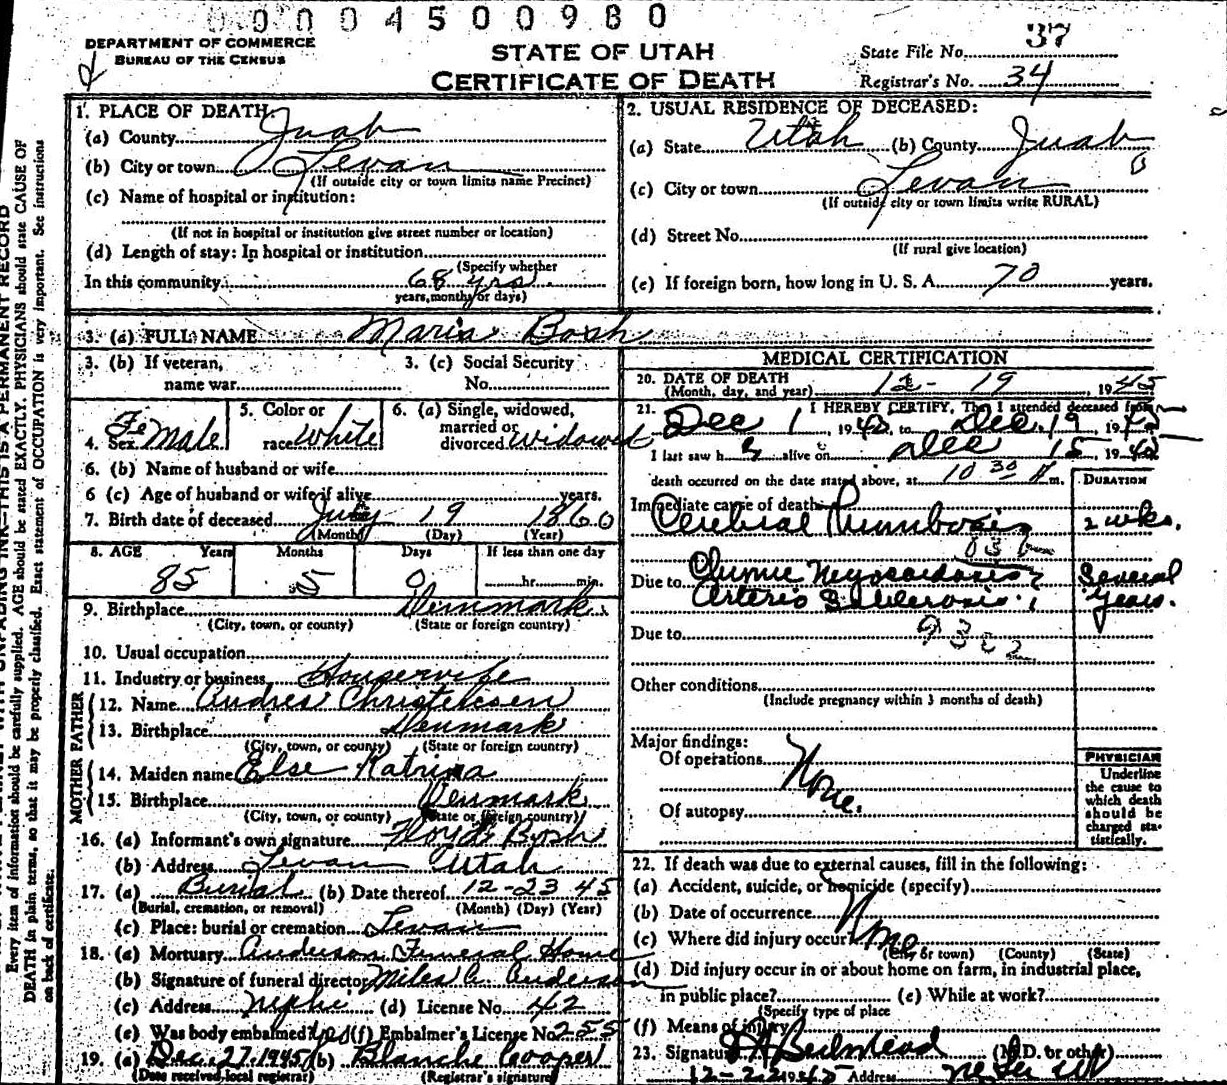 0 0 0 4 5 0 0 9 8 0
DEPARTMENT OF COMMERCE
BUREAU OF THE CENSUS
STATE OF UTAH
CERTIFICATE OF DEATH
State File No. 37
Registrar's No. 34
1. PLACE OF DEATH:
(a) County Juab
(b) City or town Levan
(If outside city or town limits name Precinct)
(c) Name of hospital or institution:
(If not in hospital or institution give street number or location)
(d) Length of stay: In hospital or institution
(Specify whether
In this community 68 yrs.
years, months or days)
2. USUAL RESIDENCE OF DECEASED:
(a) State Utah (b) County Juab
(c) City or town Levan
(If outside city or town limits write RURAL)
(d) Street No.
(If rural give location)
(e) If foreign born, how long in U. S. A. 70 years.
3. (a) FULL NAME Maria Bosh
3. (b) If veteran,
name war
3. (c) Social Security
No.
4. Sex Female
5. Color or
race White
6. (a) Single, widowed,
married or
divorced Widowed
6. (b) Name of husband or wife
6 (c) Age of husband or wife if alive years.
7. Birth date of deceased July 19 1860
(Month) (Day) (Year)
8. AGE Years Months Days If less than one day
85 5 0 hr. min.
9. Birthplace Denmark
(City, town, or county) (State or foreign country)
10. Usual occupation
11. Industry or business Housewife
FATHER
12. Name Andres Christensen
13. Birthplace Denmark
(City, town, or county) (State or foreign country)
MOTHER
14. Maiden name Else Katrina
15. Birthplace Denmark
(City, town, or county) (State or foreign country)
16. (a) Informant's own signature Floyd Bosh
(b) Address Levan Utah
17. (a) Burial (b) Date thereof 12-23 45
(Burial, cremation, or removal) (Month) (Day) (Year)
(c) Place: burial or cremation Levan
18. (a) Mortuary Anderson Funeral Home
(b) Signature of funeral director Miles A. Anderson
(c) Address Nephi (d) License No. 42
(e) Was body embalmed? Yes (f) Embalmer's License No. 255
19. (a) Dec. 27. 1945 (b) Blanche Cooper
(Date received local registrar) (Registrar's signature)
MEDICAL CERTIFICATION
20. DATE OF DEATH
(Month, day, and year) 12- 19 1945
21. I HEREBY CERTIFY, That I attended deceased from
Dec 1 1945, to Dec. 19, 1945
I last saw h alive on Dec 15, 1945
death occurred on the date stated above, at 10 30 A m.
DURATION
Immediate cause of death
Cerebral Thrombosis 2 wks.
Due to Chronic Myocardosis; Several
Arterio Sclerosis; Years.
Due to
Other conditions
(Include pregnancy within 3 months of death)
Major findings:
Of operations None.
Of autopsy
PHYSICIAN
Underline
the cause to
which death
should be
charged sta-
tistically.
22. If death was due to external causes, fill in the following:
(a) Accident, suicide, or homicide (specify)
(b) Date of occurrence None
(c) Where did injury occur?
(City or town) (County) (State)
(d) Did injury occur in or about home on farm, in industrial place,
in public place? (e) While at work?
(Specify type of place
(f) Means of injury
23. Signature (M.D. or other)
12-22 1945 Address Nephi Ut
Every item of information should be carefully supplied. AGE should be stated EXACTLY. PHYSICIANS should state CAUSE OF
DEATH in plain terms, so that it may be properly classified. Exact statement of OCCUPATION is very important. See instructions
on back of certificate.
UNFADING INK—THIS IS A PERMANENT RECORD